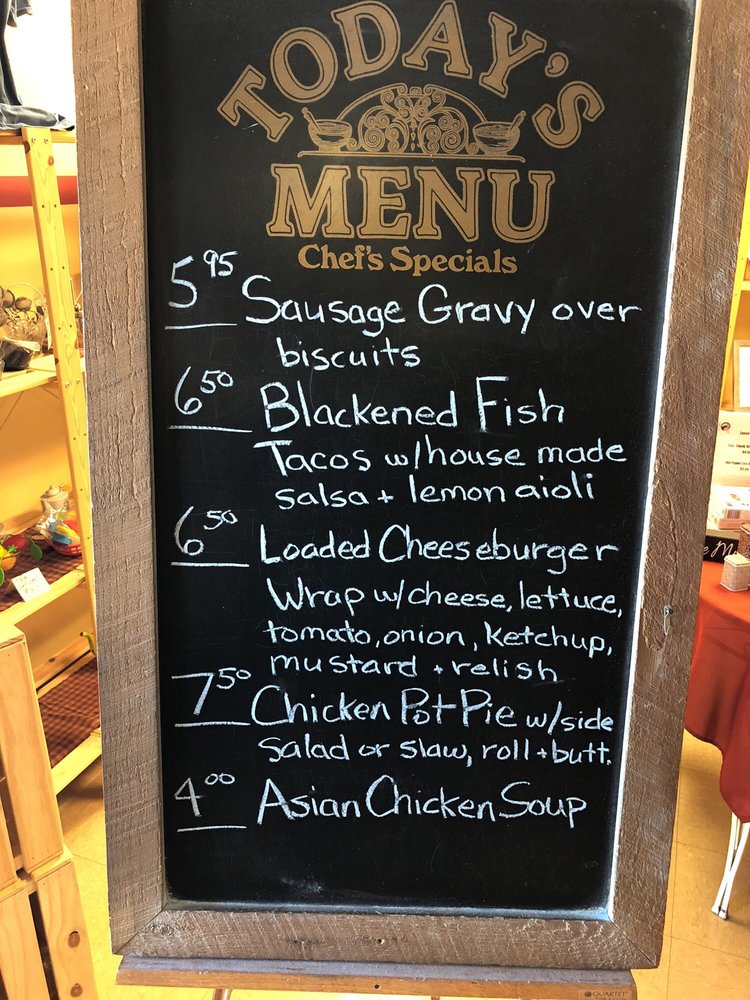 TODAY'S
MENU
Chef's Specials
5.95 Sausage Gravy over
biscuits
6.50 Blackened Fish
Tacos w/house made
salsa + lemon aioli
6.50 Loaded Cheeseburger
Wrap w/cheese, lettuce,
tomato, onion, ketchup,
mustard + relish
7.50 Chicken Pot Pie w/side
salad or slaw, roll + butt.
4.00 Asian Chicken Soup
QUARTET